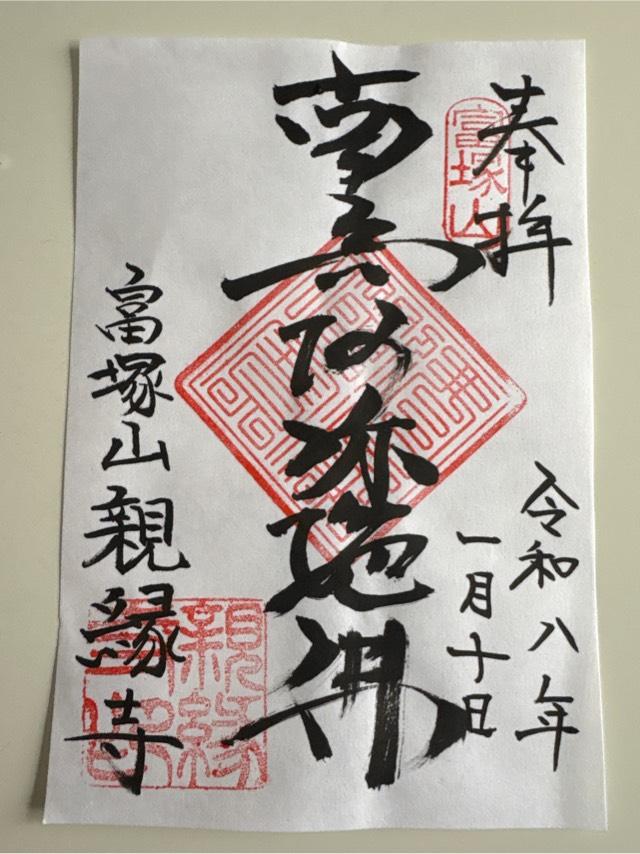 奉拝
富塚山
令和八年
一月十日
南無阿弥陀佛
富塚山親縁寺
親縁寺